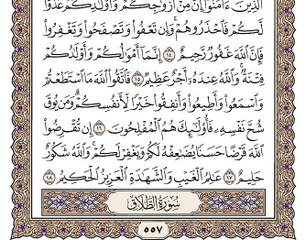 ٱلَّذِينَ ءَامَنُوٓا۟ إِنَّ مِنْ أَزْوَٰجِكُمْ وَأَوْلَٰدِكُمْ عَدُوًّا
لَّكُمْ فَٱحْذَرُوهُمْ ۚ وَإِن تَعْفُوا۟ وَتَصْفَحُوا۟ وَتَغْفِرُوا۟
فَإِنَّ ٱللَّهَ غَفُورٌ رَّحِيمٌ ١٤ إِنَّمَآ أَمْوَٰلُكُمْ وَأَوْلَٰدُكُمْ
فِتْنَةٌ ۚ وَٱللَّهُ عِندَهُۥٓ أَجْرٌ عَظِيمٌ ١٥ فَٱتَّقُوا۟ ٱللَّهَ مَا ٱسْتَطَعْتُمْ
وَٱسْمَعُوا۟ وَأَطِيعُوا۟ وَأَنفِقُوا۟ خَيْرًا لِّأَنفُسِكُمْ ۗ وَمَن يُوقَ
شُحَّ نَفْسِهِۦ فَأُو۟لَٰٓئِكَ هُمُ ٱلْمُفْلِحُونَ ١٦ إِن تُقْرِضُوا۟
ٱللَّهَ قَرْضًا حَسَنًا يُضَٰعِفْهُ لَكُمْ وَيَغْفِرْ لَكُمْ ۚ وَٱللَّهُ شَكُورٌ
حَلِيمٌ ١٧ عَٰلِمُ ٱلْغَيْبِ وَٱلشَّهَٰدَةِ ٱلْعَزِيزُ ٱلْحَكِيمُ ١٨
سُورَةُ ٱلطَّلَاقِ
٥٥٧